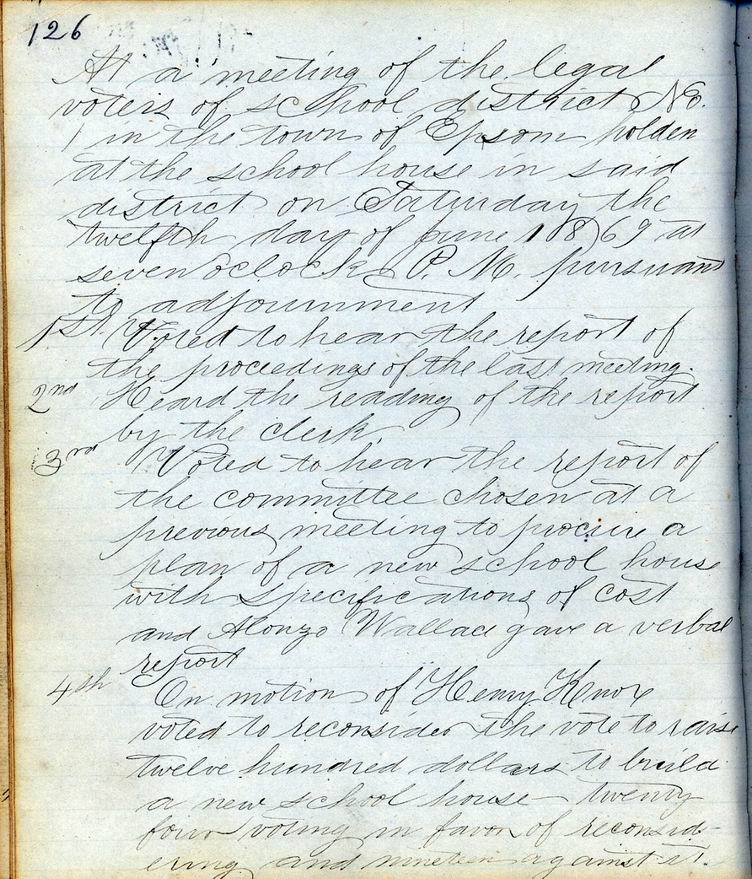 126
At a meeting of the legal
voters of school district No.
1 in the town of Epsom holden
at the school house in said
district on Saturday the
twelfth day of June 1869 at
seven oclock P. M. pursuant
to adjournment
1st Voted to hear the report of
the proceedings of the last meeting.
2nd Heard the reading of the report
by the clerk.
3rd Voted to hear the report of
the committee chosen at a
previous meeting to procure a
plan of a new school house
with specifications of cost
and Alonzo Wallace gave a verbal
report
4th On motion of Henry Knox
voted to reconsider the vote to raise
twelve hundred dollars to build
a new school house — twenty
four voting in favor of reconsid-
ering and nineteen against it.